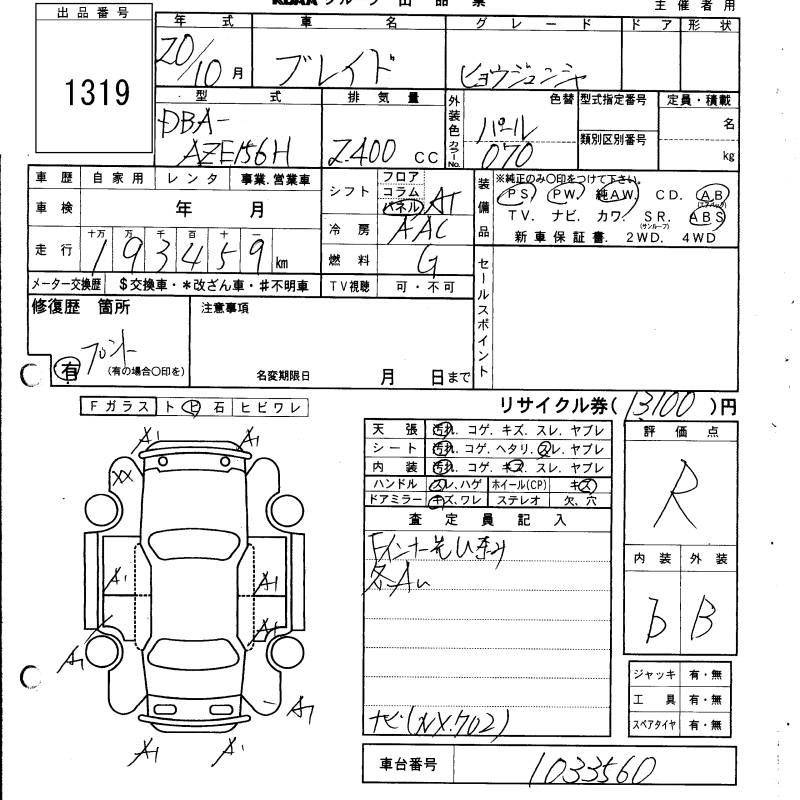 KCAA グループ 出品票
主催者用
出品番号
1319
年式 車名 グレード ドア 形状
20/10月 ブレイド ヒョウジュンシャ
型式 排気量 外装色 カラーNo. 色替 型式指定番号 定員・積載
DBA-
AZE156H 2.400 cc パール 070 類別区別番号 名
kg
車歴 自家用 レンタ 事業.営業車
車検 年 月
走行 十万 万 千 百 十 一
193459 km
メーター交換歴 $交換車・*改ざん車・#不明車
シフト フロア コラム パネル AT
冷房 AAC
燃料 G
TV視聴 可・不可
装備品 ※純正のみ○印をつけて下さい。
PS. PW. 純AW. CD. AB(エアバック)
TV. ナビ. カワ. SR.(サンルーフ) ABS
新車保証書. 2WD. 4WD
セールスポイント
修復歴 箇所 注意事項
有 フロント
(有の場合○印を) 名変期限日 月 日まで
Fガラス ト ビ 石 ヒビワレ
リサイクル券( 13100 )円
A1 A1
XX
A1 A1
A1
A1 A1
A1 A1
天張 汚れ. コゲ. キズ. スレ. ヤブレ
シート 汚れ. コゲ. ヘタリ. スレ. ヤブレ
内装 汚れ. コゲ. キズ. スレ. ヤブレ
ハンドル スレ. ハゲ ホイール(CP) キズ
ドアミラー キズ. ワレ ステレオ 欠. 穴
査定員記入
各A
ナビ(NX702)
評価点
R
内装 外装
D B
ジャッキ 有・無
工具 有・無
スペアタイヤ 有・無
車台番号 1033560